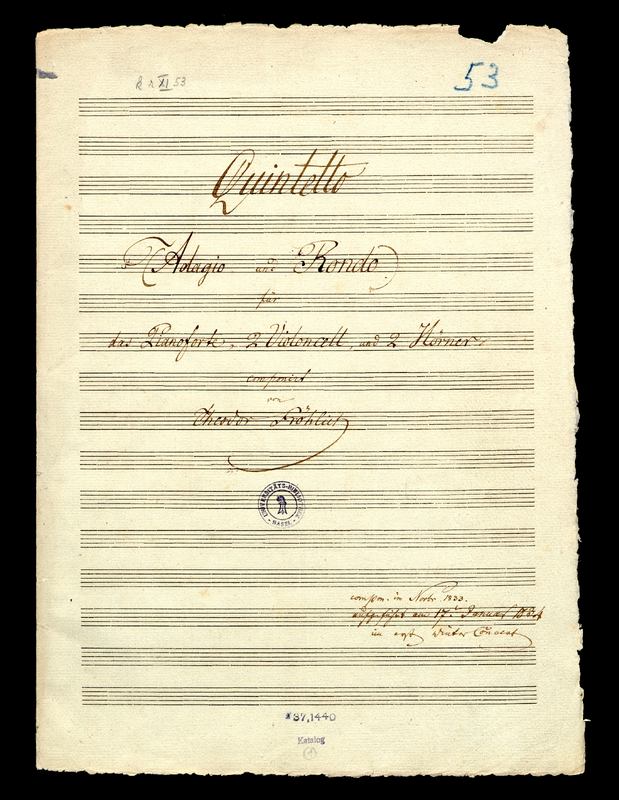 k r XI 53
53
Quintetto
(Adagio und Rondo)
für
das Pianoforte, 2 Violoncell, und 2 Hörner
componirt
von
Theodor Fröhlich
UNIVERSITÄTS-BIBLIOTHEK
BASEL
compon. im Novbr. 1833.
aufgeführt am 17t Januar 1834
im erst Winter Concert
*37,1440
Katalog